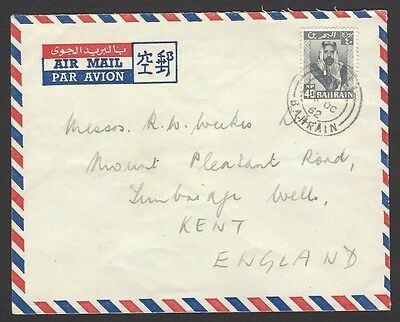 بالبريد الجوى
AIR MAIL
PAR AVION
空郵
البحرين
40 NP
BAHRAIN
OC
62
BAHRAIN
Messrs. R. W. Weekes
Mount Pleasant Road,
Tunbridge Wells,
KENT
ENGLAND